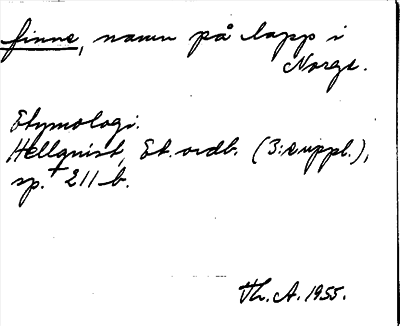 finne, namn på lapp i
Norge.
Etymologi.
Hellquist, Et. ordb. (3:e uppl.),
sp. 211 b.
Th. A. 1955.